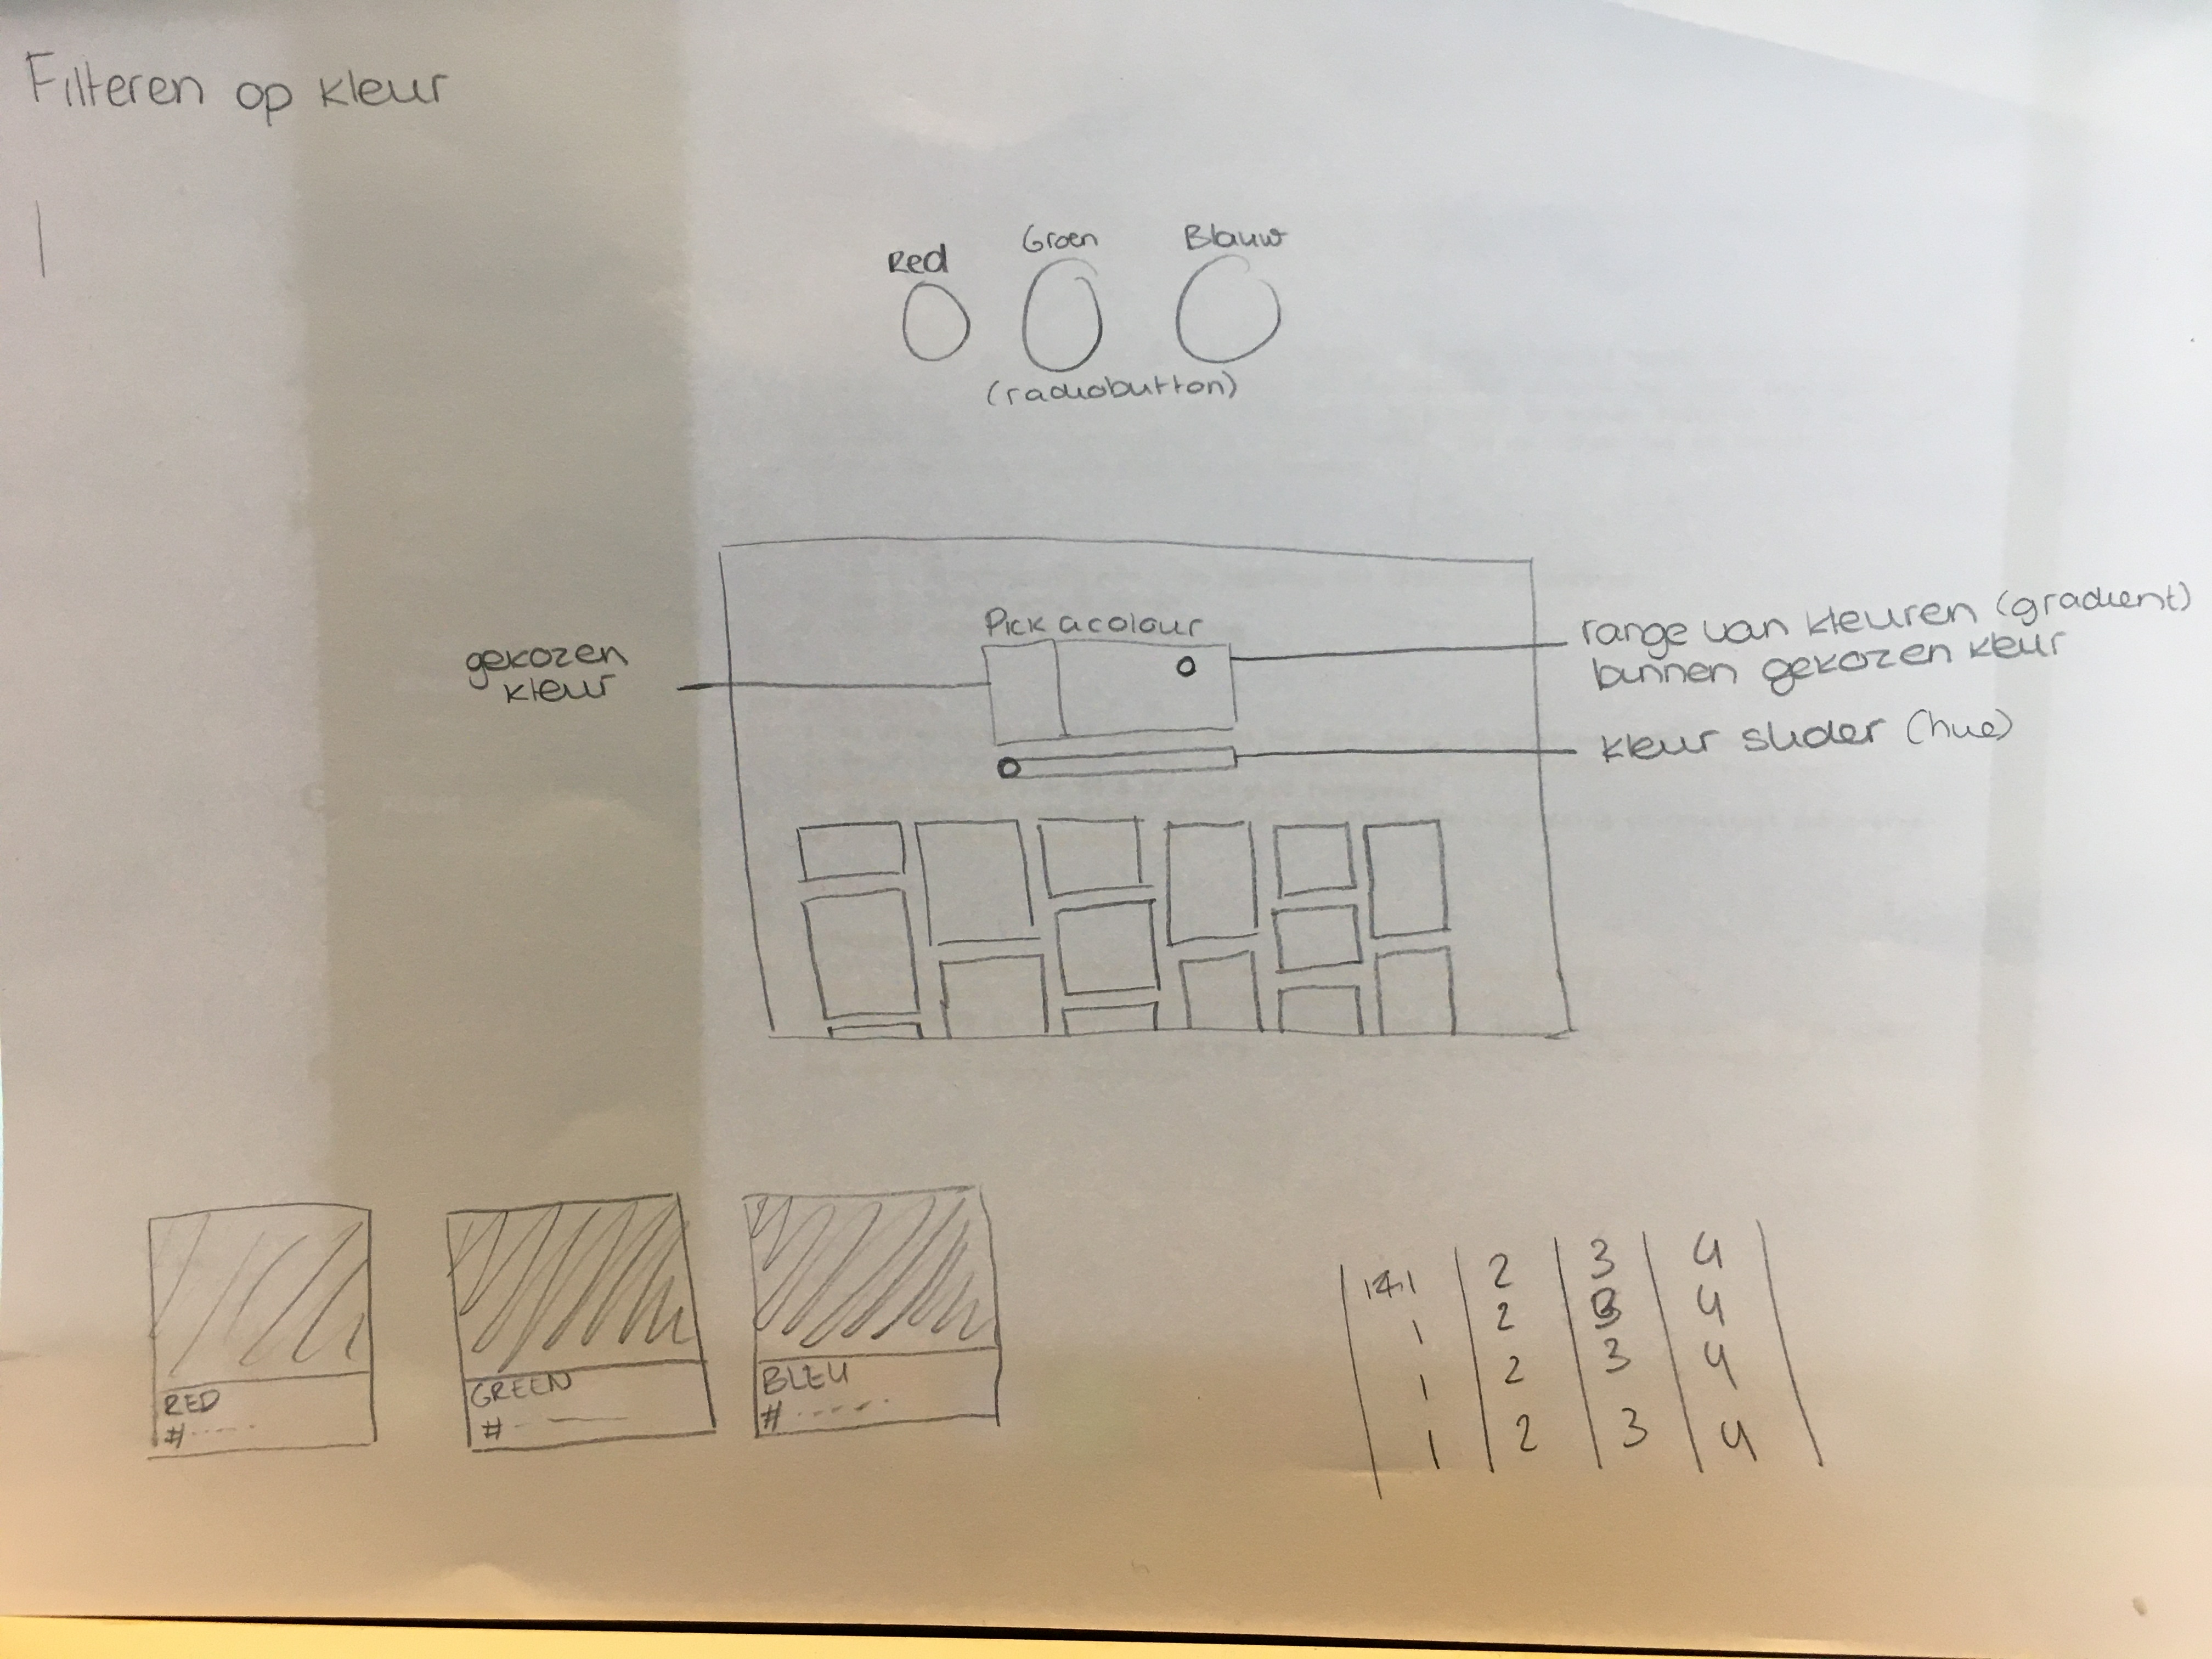 Filteren op kleur
Red Groen Blauw
(radiobutton)
Pick a colour
gekozen
kleur
range van kleuren (gradient)
binnen gekozen kleur
kleur slider (hue)
RED
#-----
GREEN
#-----
BLEU
#-----
2 3 4
1 2 3 4
1 2 3 4
1 2 3 4